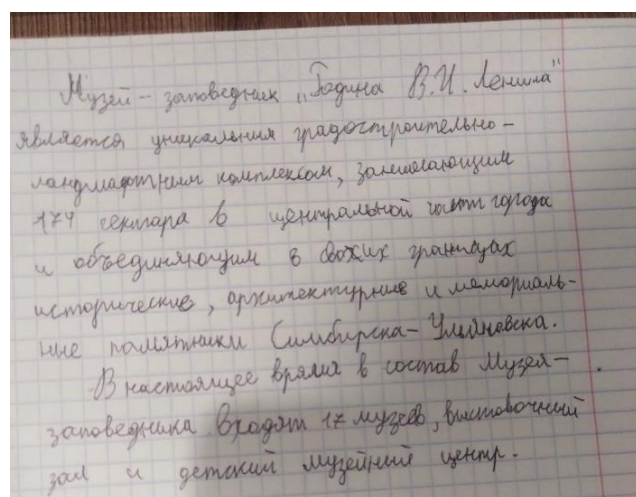 Музей – заповедник „Родина В.И. Ленина"
является уникальным градостроительно–
ландшафтным комплексом, занимающим
174 гектара в центральной части города
и объединяющим в своих границах
исторические, архитектурные и мемориаль-
ные памятники Симбирска–Ульяновска.
В настоящее время в состав Музея–
заповедника входят 17 музеев, выставочный
зал и детский музейный центр.